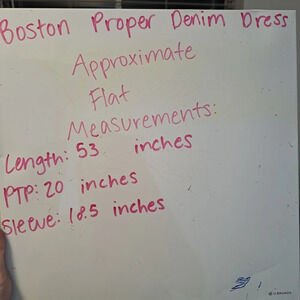 Boston Proper Denim Dress
Approximate
Flat
Measurements:
Length: 53 inches
PTP: 20 inches
Sleeve: 18.5 inches